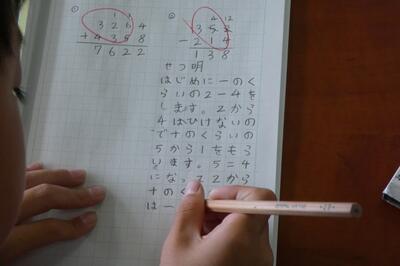 ①
1 1
3264
+4358
7622
②
4 12
352
-214
138
せつ明
はじめに一のく
らいの2-4を
します。2から
4はひけないの
で十のくらいの
5から1をもら
います。5=4
にな 2から
十のく
は一